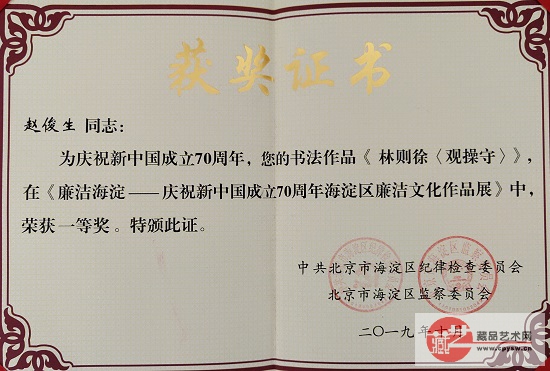 获奖证书
赵俊生 同志：
为庆祝新中国成立70周年，您的书法作品《 林则徐〈观操守〉》，
在《廉洁海淀——庆祝新中国成立70周年海淀区廉洁文化作品展》中，
荣获一等奖。特颁此证。
中共北京市海淀区纪律检查委员会
北京市海淀区监察委员会
二〇一九年十月
藏品艺术网